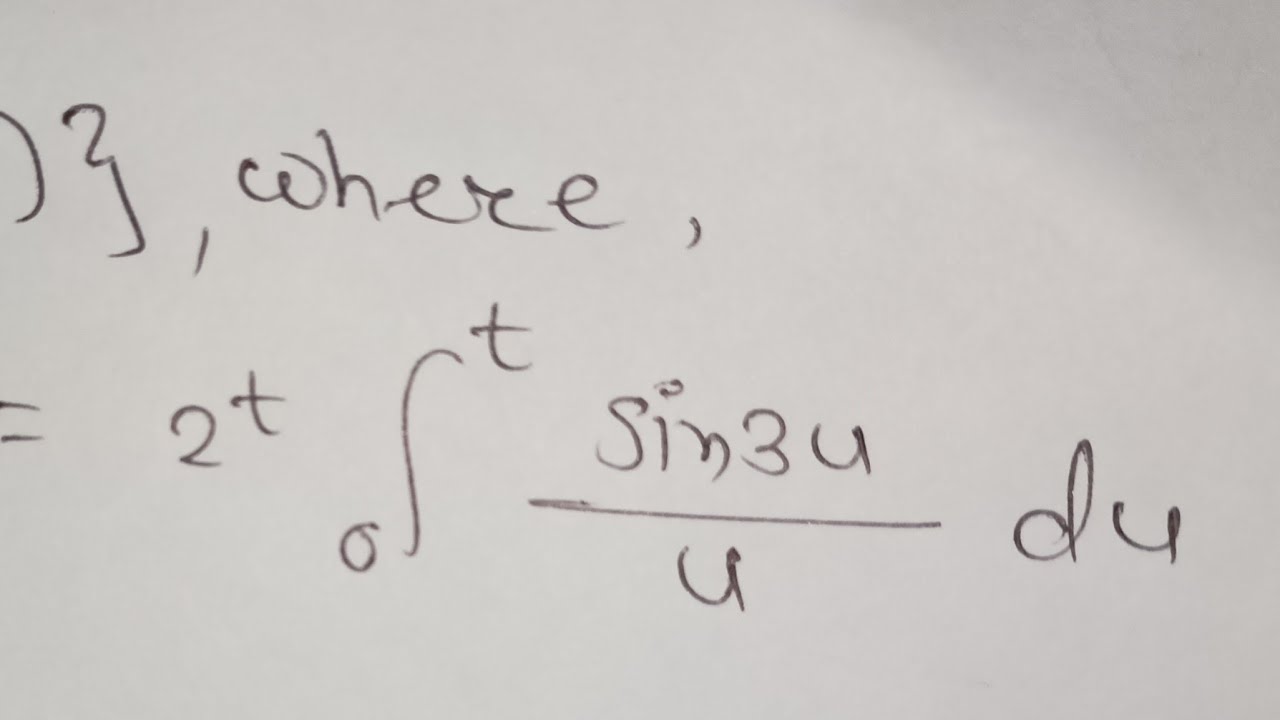 )}, where,
= 2^t ∫_0^t (sin3u)/u du